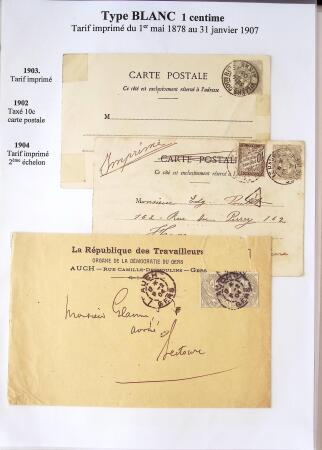 Type BLANC 1 centime
Tarif imprimé du 1er mai 1878 au 31 janvier 1907
1903.
Tarif imprimé
1902
Taxé 10c
carte postale
1904
Tarif imprimé
2ème échelon
CARTE POSTALE
Ce côté est exclusivement réservé à l'adresse
M
Imprimé
CARTE POSTALE
Ce côté est exclusivement réservé à l'
Monsieur
162 Rue de 162
La République des Travailleurs
ORGANE DE LA DÉMOCRATIE DU GERS
AUCH — RUE CAMILLE-DESMOULINS — GERS
AUCH
GERS
Monsieur
avoué
Lectoure